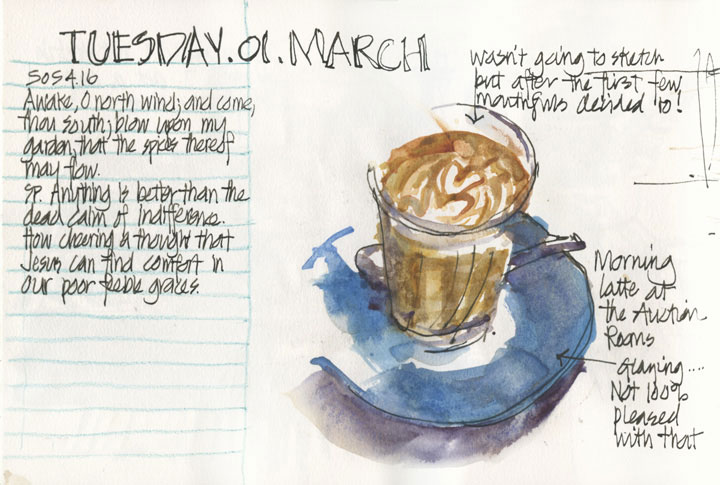 TUESDAY.01.MARCH
SOS 4.16
Awake, O north wind; and come,
thou south; blow upon my
garden, that the spices thereof
may flow.
SP. Anything is better than the
dead calm of indifference.
How cheering a thought that
Jesus can find comfort in
our poor feeble graces.
Wasn't going to sketch
but after the first few
mouthfuls decided to!
Morning
latte at
the Auction
Rooms
Glazing....
Not 100%
pleased
with that